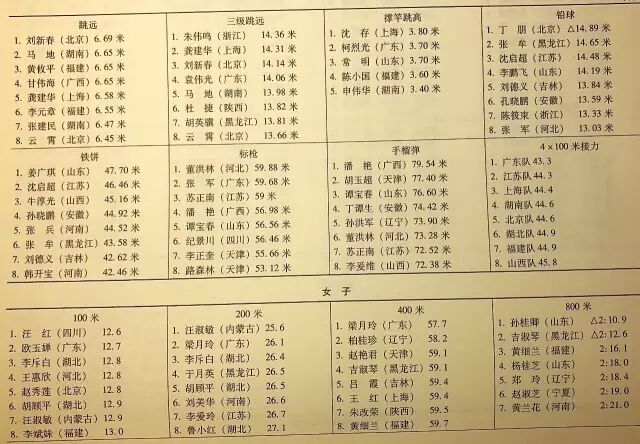 跳远
1. 刘新春（北京）6.69 米
2. 马 地（湖南）6.68 米
3. 黄攸平（福建）6.65 米
4. 甘伟海（广西）6.65 米
5. 龚建华（上海）6.58 米
6. 李元章（福建）6.55 米
7. 张建民（湖南）6.47 米
8. 云 霄（北京）6.45 米
三级跳远
1. 朱伟鸣（浙江）14.36 米
2. 龚建华（上海）14.31 米
3. 刘新春（北京）14.14 米
4. 袁伟光（广东）14.06 米
5. 马 地（湖南）13.98 米
6. 杜 捷（陕西）13.82 米
7. 胡英骥（黑龙江）13.81 米
8. 云 霄（北京）13.66 米
撑竿跳高
1. 沈 存（上海）3.80 米
2. 柯烈光（广东）3.70 米
3. 常 明（山东）3.70 米
4. 陈小国（福建）3.60 米
5. 申伟华（湖南）3.40 米
铅球
1. 丁 朋（北京）△14.89 米
2. 张 牟（黑龙江）14.65 米
3. 沈启超（江苏）14.48 米
4. 李鹏飞（山东）14.19 米
5. 刘德义（吉林）13.84 米
6. 孔晓鹏（安徽）13.59 米
7. 陈筱東（浙江）13.33 米
8. 张 军（河北）13.03 米
铁饼
1. 姜广琪（山东）47.70 米
2. 沈启超（江苏）46.46 米
3. 牛淳光（山西）45.16 米
4. 孙晓鹏（安徽）44.92 米
5. 张 兵（河南）44.52 米
6. 张 牟（黑龙江）43.58 米
7. 刘德义（吉林）42.62 米
8. 韩开宝（河南）42.46 米
标枪
1. 董洪林（河北）59.88 米
2. 张 军（广东）59.68 米
3. 苏正南（江苏）59 米
4. 潘 艳（广西）56.98 米
5. 谭宝春（山东）56.56 米
6. 纪景川（四川）56.46 米
7. 李正奎（天津）55.66 米
8. 路森林（天津）53.12 米
手榴弹
1. 潘 艳（广西）79.54 米
2. 胡玉超（天津）77.40 米
3. 谭宝春（山东）76.60 米
4. 丁谭生（安徽）74.42 米
5. 孙洪军（辽宁）73.90 米
6. 董洪林（河北）73.28 米
7. 苏正南（江苏）72.52 米
8. 李爱维（山西）72.38 米
4×100 米接力
1. 广东队 43.3
2. 江苏队 44.3
3. 上海队 44.4
4. 湖南队 44.6
5. 北京队 44.6
6. 湖北队 44.9
7. 福建队 44.9
8. 山西队 45.8
女 子
100 米
1. 汪 红（四川）12.6
2. 欧玉婵（广东）12.7
3. 李斥白（湖北）12.8
4. 王惠欣（河北）12.8
5. 赵秀莲（北京）12.8
6. 胡顾平（湖北）12.9
7. 汪淑敏（内蒙古）12.9
8. 李斌妹（福建）13.0
200 米
1. 汪淑敏（内蒙古）25.6
2. 梁月玲（广东）26.1
3. 李斥白（湖北）26.4
4. 于月英（黑龙江）26.5
5. 胡顾平（湖北）26.5
6. 刘美华（河南）26.6
7. 李爱玲（江苏）26.7
8. 鲁小红（湖北）27.1
400 米
1. 梁月玲（广东）57.7
2. 柏桂珍（辽宁）58.2
3. 赵艳君（天津）59.1
4. 吉淑琴（黑龙江）59.1
5. 吕 霞（吉林）59.4
6. 王 红（上海）59.4
7. 朱改荣（陕西）59.5
8. 黄细兰（福建）59.4
800 米
1. 孙桂卿（山东）△2:10.9
2. 吉淑琴（黑龙江）△2:12.6
3. 黄细兰（福建）2:16.1
4. 杨桂芝（山东）2:18.0
5. 郑 玲（辽宁）2:18.4
6. 赵淑芝（宁夏）2:19.0
7. 黄兰花（河南）2:21.0